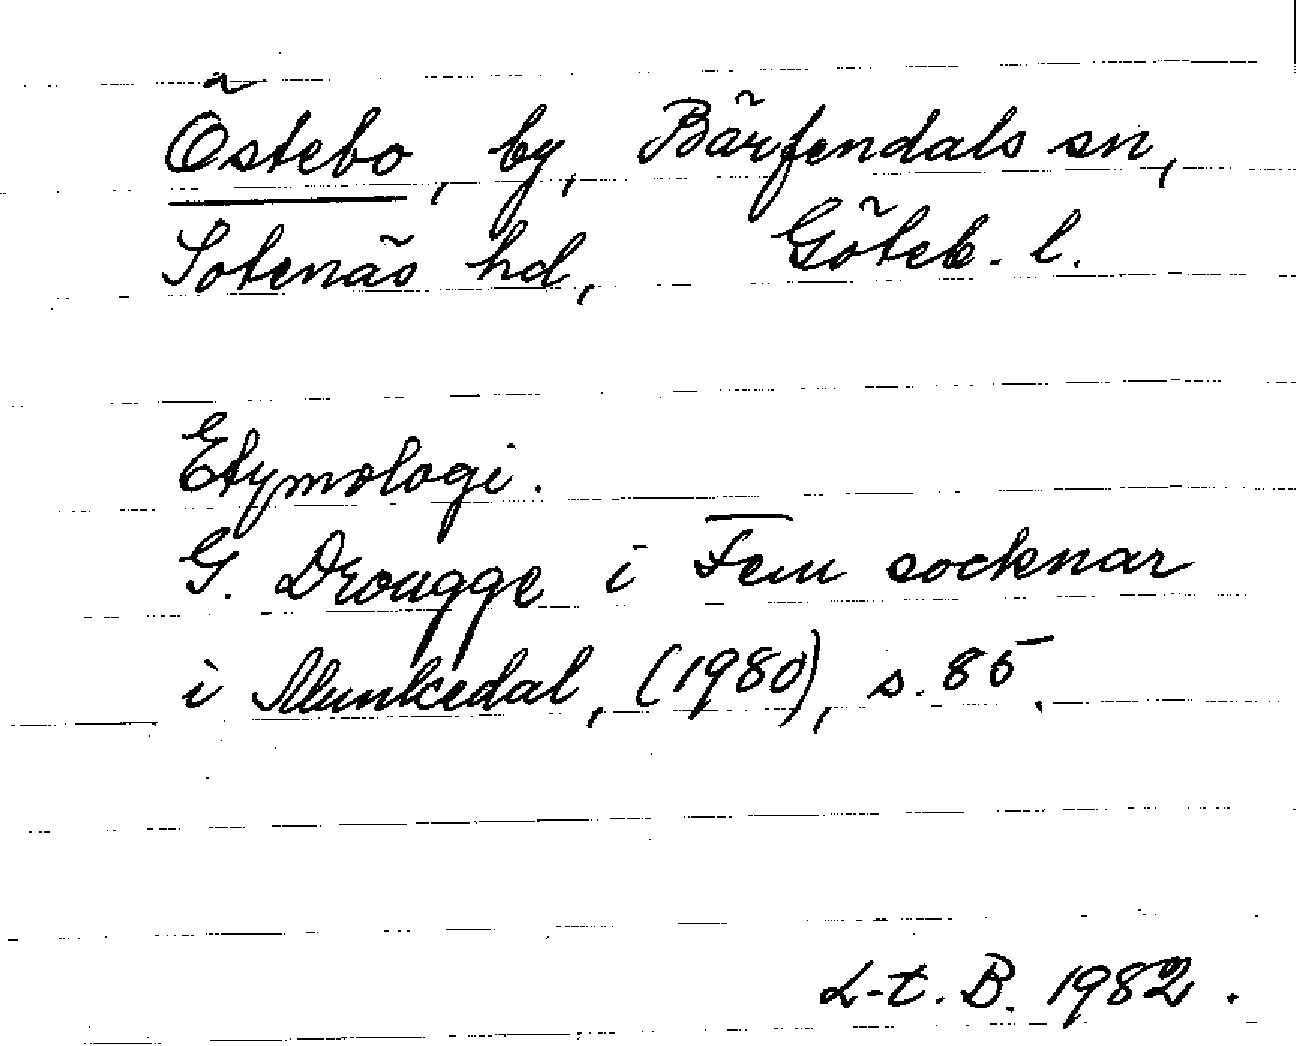 Östebo, by, Bärfendals sn,
Sotenäs hd, Göteb. l.
Etymologi.
G. Drougge i Fem socknar
i Munkedal, (1980), s. 85.
L-t. B. 1982.